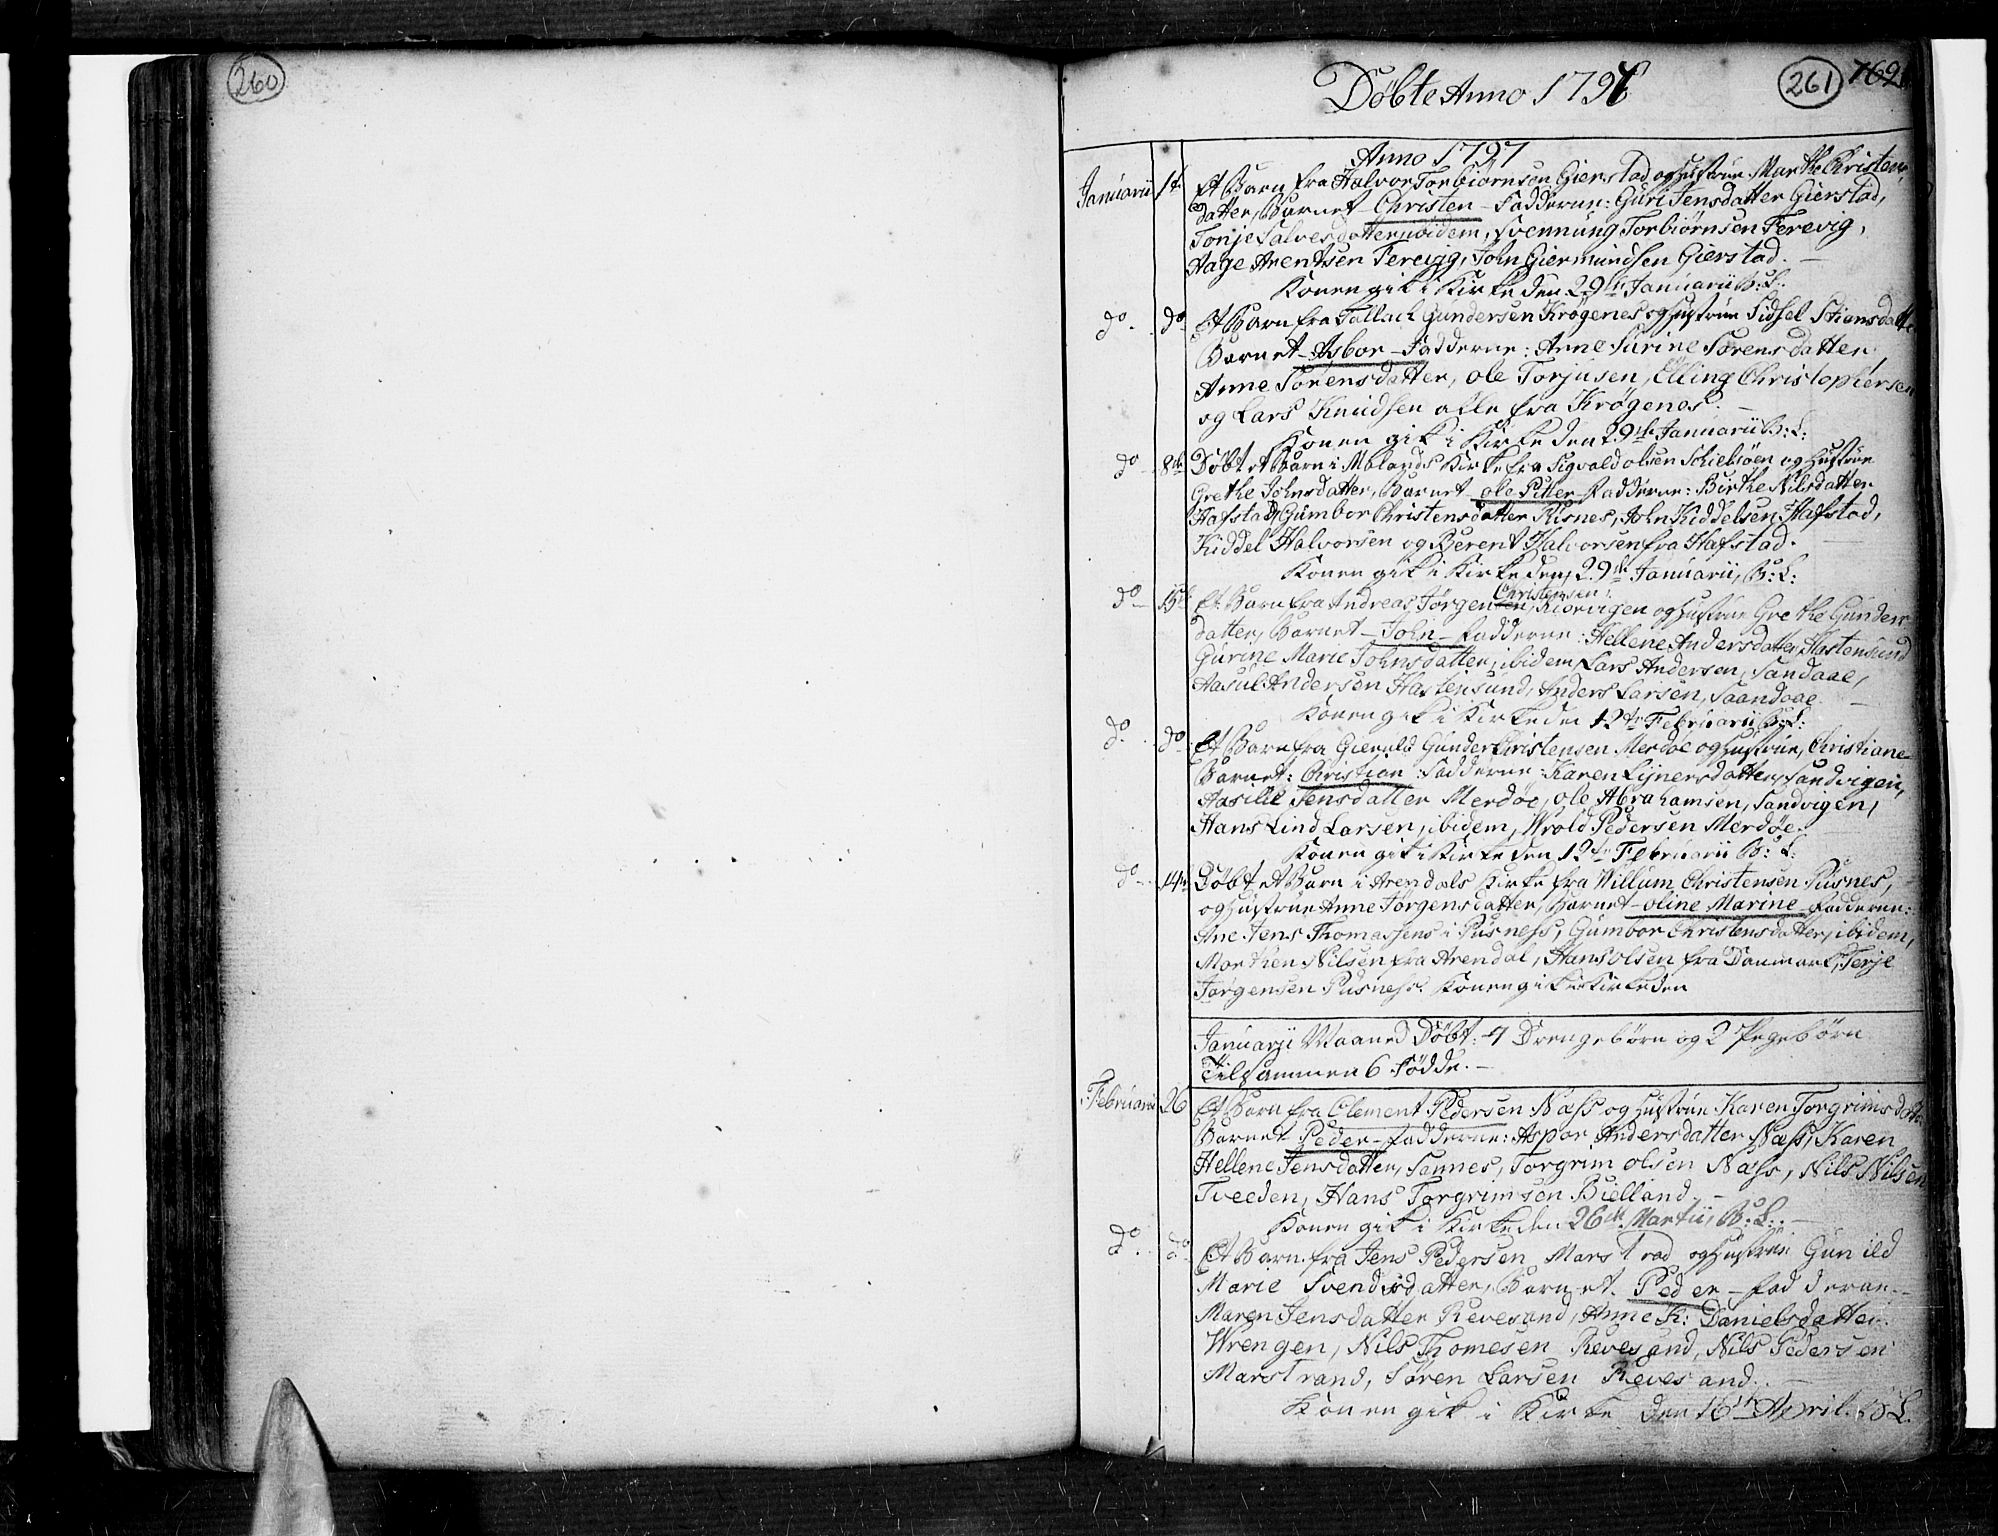 260
Döbte Anno 1797
261
Anno 1797
Januarii 1te Et Barn fra Halvor Torbiörnsen Gierstad og Hustrue Marthe Christens
datter, Barnet - Christen - Fadderne: Guri Jensdatter Gierstad,
Tonje Salvesdatter, ibidem, Svennung Torbiörnsen Ferevig,
Aage Arentsen Fereigg, John Giermundsen Gierstad. -
Konen gik i Kirke den 29de Januarii B: L:
do. do Et Barn fra Tallach Gundersen Krögenes og Hustrue Sidsel Stiensdatter
Barnet - Asbor - Fadderne: Anne Surine Sörensdatter,
Anne Sörensdatter, Ole Torjusen, Elling Christophersen
og Lars Knudsen alle fra Krögenes. -
Konen gik i Kirke den 29de Januarii B: L:
do 8de Döbt et Barn i Molands Kirke fra Sigvald Olsen Schielsöen og Hustrue
Grethe Johnsdatter, Barnet - Ole Pitter - Fadderne: Birthe Nilsdatter
Hafstad, Gumbor Christensdatter Risnes, John Kiddelsen Hafstad,
Kiddel Halvorsen og Berent Halvorsen fra Hafstad. -
Konen gik i Kirke den 29de Januarii, B: L:
Christensen
do 15de Et Barn fra Andreas Jörgensen, Kiörvigen og Hustrue Grethe Gunders
datter, Barnet - John - Fadderne: Hellene Andersdatter, Hastensund
Gurine Marie Johnsdatter, ibidem, Lars Andersen, Sandaae,
Aasul Andersen Hastensund, Anders Larsen, Saandaae. -
Konen gik i Kirke den 12te Februarii B: L:
do. do Et Barn fra Gieruld Gunder Christensen Merdöe og Hustrue, Christiane
Barnet: Christian : Fadderne: Karen Ejnersdatter, Sandvigen,
Aasille Jensdatter Merdöe, Ole Abrahamsen, Sandvigen,
Hans Lind Larsen, ibidem, Wrold Pedersen Merdöe.
Konen gik i Kirke den 12te Februarii B: L:
do 14de Döbt et Barn i Arendals Kirke fra Willum Christensen Pusnes,
og Hustrue Anne Jörgensdatter, Barnet - Oline Marine - Fadderne:
Ane Jens Thomassens i Pusness, Gumbor Christensdatter, ibidem,
Morthen Nilsen fra Arendal, Hans Olsen fra Danmark, Terje
Jörgensen Pusness. Konen gik i Kirke den
Januarji Maaned Döbt: 4 Drengebörn og 2 Pigebörn
Tilsammen 6 Födde. -
Februarii 26 Et Barn fra Clement Pedersen Næss og Hustrue Karen Torgrimsdatt.
Barnet Peder - Fadderne: Aspor Andersdatter Næss, Karen
Hellene Jensdatter, Sannes, Torgrim Olsen Næss, Nils Nilsen
Tveeden, Hans Torgrimsen Bielland. -
Konen gik i Kirke den 26de Martii, B: L:. -
do. do Et Barn fra Jens Pedersen Marstrad og Hustrue Gunild
Marie Svendsdatter, Barnet. Peder - Fadderne. -
Maren Jensdatter Revesand, Anne K: Danielsdatter.
Wrengen, Nils Thomesen Revesand, Nils Pedersen
Marstrand, Sören Larsen Revesand. -
Konen gik i Kirke den 16de April. B L.